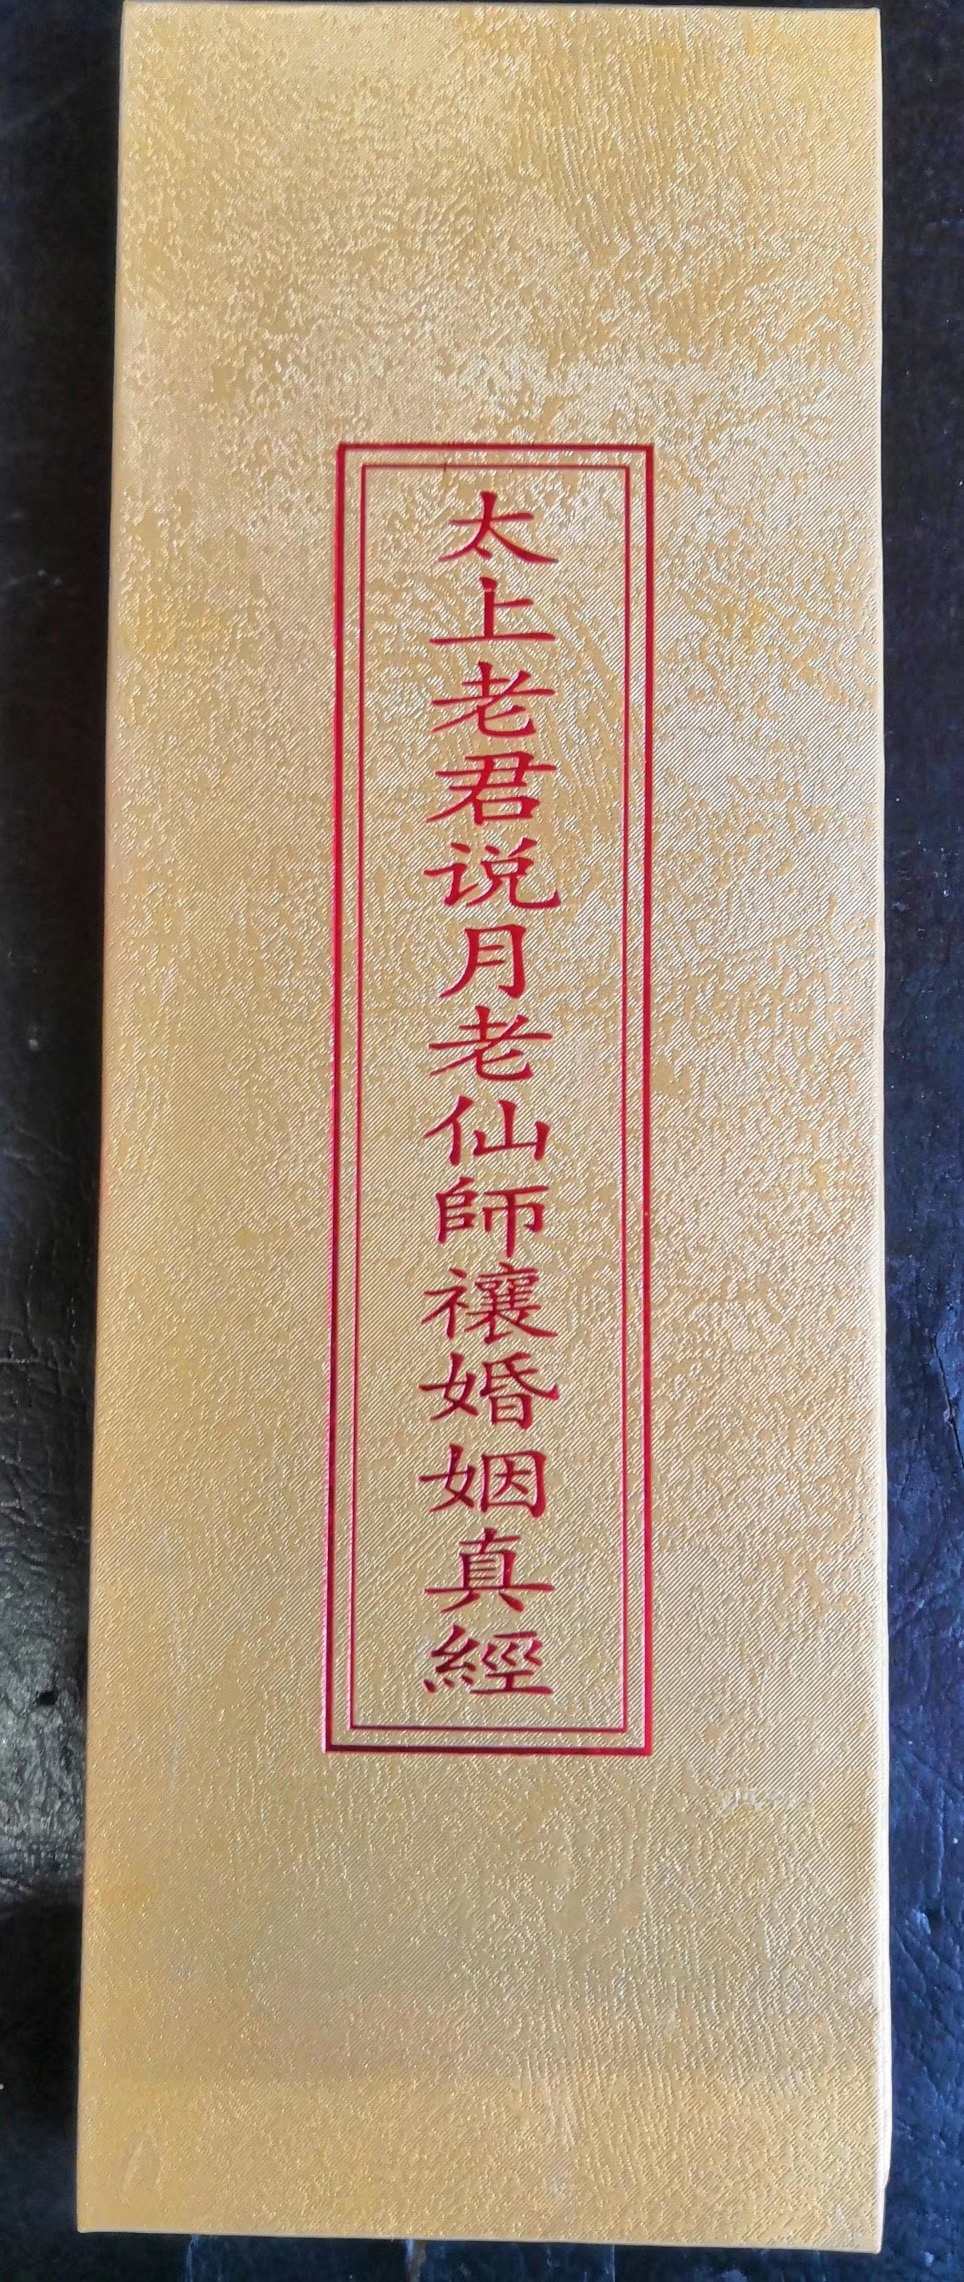 太上老君说月老仙師禳婚姻真經